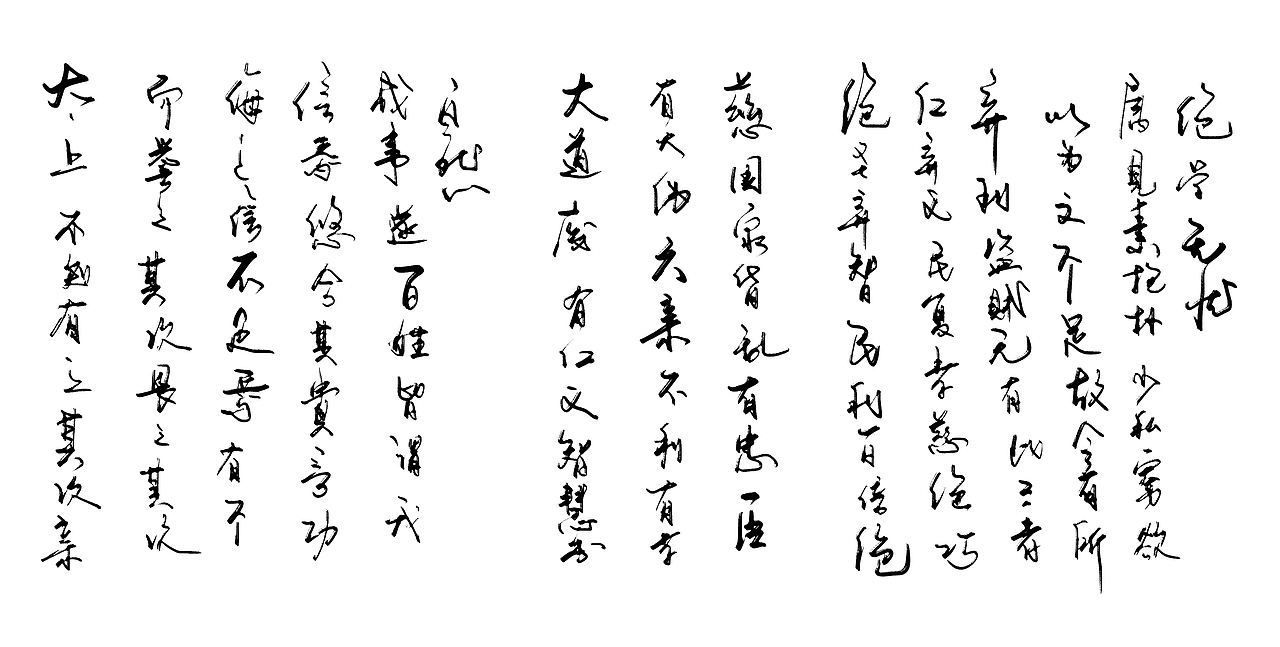 太上不知有之其次亲
而誉之其次畏之其次
侮之信不足焉有不
信焉悠兮其貴言功
成事遂百姓皆谓我
自然
大道废有仁义智慧出
有大伪六亲不和有孝
慈国家昏乱有忠臣
绝圣弃智民利百倍绝
仁弃义民复孝慈绝巧
弃利盗賊无有此三者
以为文不足故令有所
属見素抱朴少私寡欲
绝学无忧